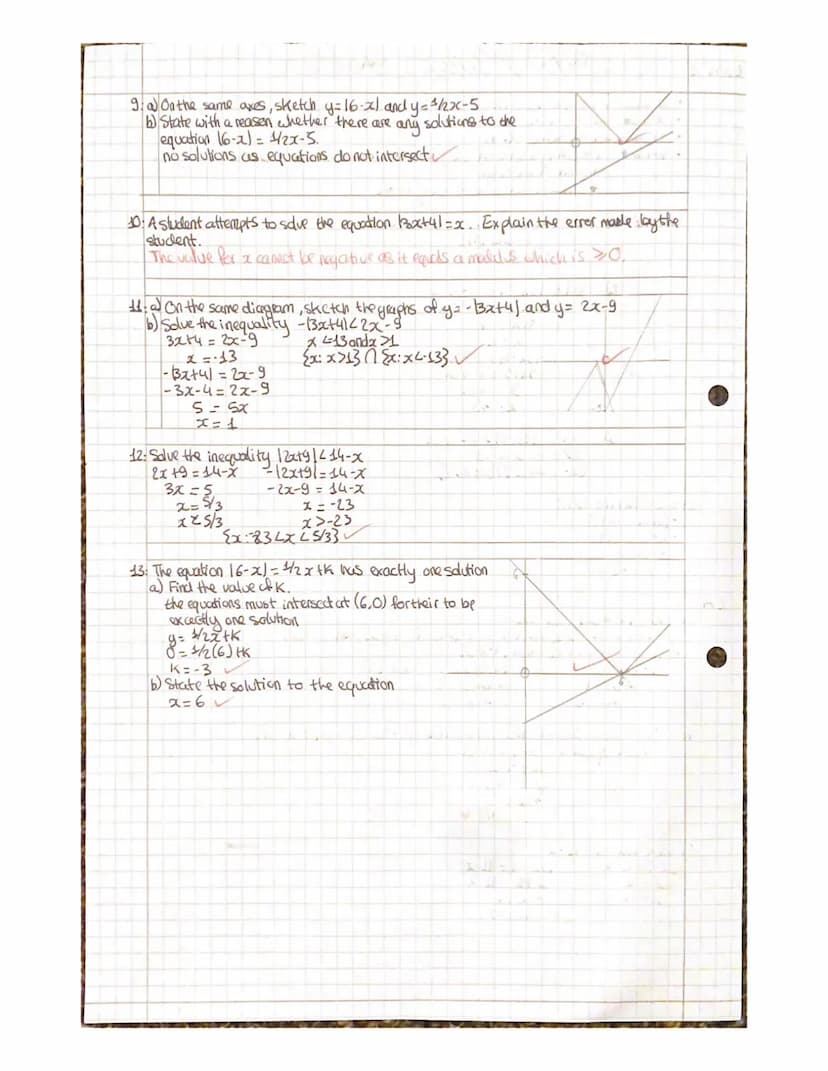 9: a) On the same axes, sketch y=|6-x| and y=1/2x-5
b) State with a reason whether there are any solutions to the
equation |6-x| = 1/2x-5.
no solutions as equations do not intersect
10: A student attempts to solve the equation |3x+4|=x. Explain the error made by the
student.
The value for x cannot be negative as it equals a modulus which is ≥0.
11: a) On the same diagram, sketch the graphs of y= -|3x+4| and y= 2x-9
b) Solve the inequality -|3x+4|<2x-9
3x+4 = 2x-9 x<-13 and x>1
x = -13 {x: x>1} ∩ {x: x<-13}
-|3x+4| = 2x-9
-3x-4 = 2x-9
5 = 5x
x = 1
12: Solve the inequality |2x+9|<14-x
2x+9=14-x -|2x+9|=14-x
3x = 5 -2x-9 = 14-x
x= 5/3 x = -23
x<5/3 x>-23
{x: -23<x<5/3}
13: The equation |6-x| = 1/2x+k has exactly one solution
a) Find the value of K.
the equations must intersect at (6,0) for their to be
excactly one solution
y= 1/2x+k
0= 1/2(6)+k
K=-3
6
b) State the solution to the equation
x=6